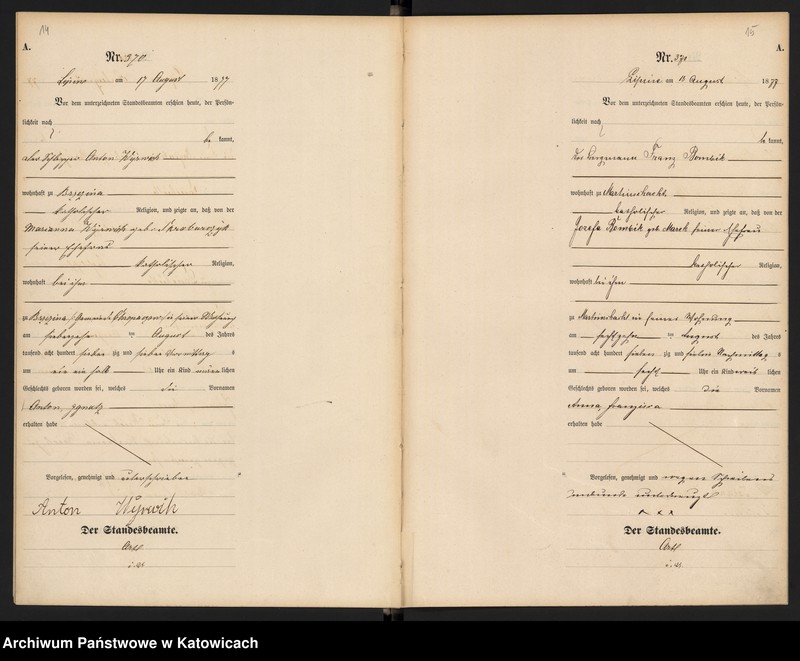 14
A.
Nr. 370
Lipine am 17 August 1877
Vor dem unterzeichneten Standesbeamten erschien heute, der Persön-
lichkeit nach
be kannt,
der Schlepper Anton
wohnhaft zu Brzezina
katholischer Religion, und zeigte an, daß von der
Marianna geb.
seiner Ehefrau
katholischer Religion,
wohnhaft bei ihm
zu Brzezina in seiner Wohnung
am siebzehn ten August des Jahres
tausend acht hundert sieben zig und sieben Vormittag s
um ein halb Uhr ein Kind männlichen
Geschlechts geboren worden sei, welches die Vornamen
Anton Ignatz
erhalten habe
Vorgelesen, genehmigt und unterschrieben
Anton
Der Standesbeamte.
15
A.
Nr. 371
Lipine am August 1877
Vor dem unterzeichneten Standesbeamten erschien heute, der Persön-
lichkeit nach
be kannt,
der Bergmann Franz Rombik
wohnhaft zu Martinschacht
katholischer Religion, und zeigte an, daß von der
Josefa Rombik geb. Marek seiner Ehefrau
katholischer Religion,
wohnhaft bei ihm
zu Martinschacht in seiner Wohnung
am sechszehn ten August des Jahres
tausend acht hundert sieben zig und sieben Nachmittag s
um sechs Uhr ein Kind weib lichen
Geschlechts geboren worden sei, welches die Vornamen
Anna Franziska
erhalten habe
Vorgelesen, genehmigt und wegen Schreibens
unkunde unterkreuzt
x x x
Der Standesbeamte.
Archiwum Państwowe w Katowicach